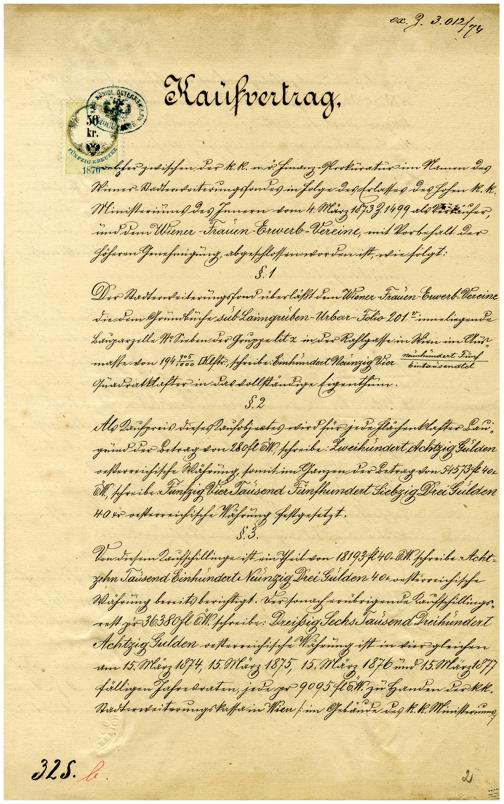 ex. Z. 3.012/74
Kaufvertrag,
50
kr.
FÜNFZIG KREUZER
1870
welcher zwischen der k. k. n. ö. Finanz-Prokuratur im Namen des
Wiener Stadterweiterungsfondes in Folge des Erlasses des hohen k. k.
Ministeriums des Innern vom 4. März 1873 Z. 1499 als Verkäufer,
und dem Wiener-Frauen-Erwerb-Vereine, mit Vorbehalt der
höheren Genehmigung, abgeschlossen worden ist, wie folgt:
§. 1
Der Stadterweiterungsfond überläßt dem Wiener Frauen-Erwerb-Vereine
die dem Grundbuche sub Laimgruben-Urbar-Folio 201 inneliegende
Bauparzelle No Sieben der Gruppe lit z in der Rahlgasse in Wien im Aus-
masse von 194 905/1000 □Klftr., schreibe: Einhundert Neunzig Vier neunhundert Fünf/eintausendtel
Quadratklafter in das vollständige Eigenthum.
§. 2
Als Kaufpreis dieses Kaufobjectes wird für jede Flächenklafter Bau-
grund der Betrag von 280 fl ÖW, schreibe: Zweihundert Achtzig Gulden
oesterreichische Währung, somit im Ganzen der Betrag von 54573 fl 40 kr
ÖW, schreibe: Fünfzig Vier Tausend Fünfhundert Siebzig Drei Gulden
40 kr oesterreichische Währung festgesetzt.
§. 3.
Von diesem Kaufschillinge ist ein Theil von 18193 fl 40 kr ÖW. schreibe: Acht-
zehn Tausend Einhundert Neunzig Drei Gulden 40 kr oesterreichische
Währung bereits berichtigt. Der sonach erübrigende Kaufschillings-
rest pr 36380 fl ÖW. schreibe: Dreißig Sechs Tausend Dreihundert
Achtzig Gulden oesterreichische Währung ist in vier gleichen
am 15. März 1874, 15. März 1875, 15. März 1876 und 15. März 1877
fälligen Jahresraten, jede pr 9095 fl ÖW. zu Handen der k. k.
Stadterweiterungskassa in Wien (im Gebäude des k. k. Ministeriums
325. b.
2